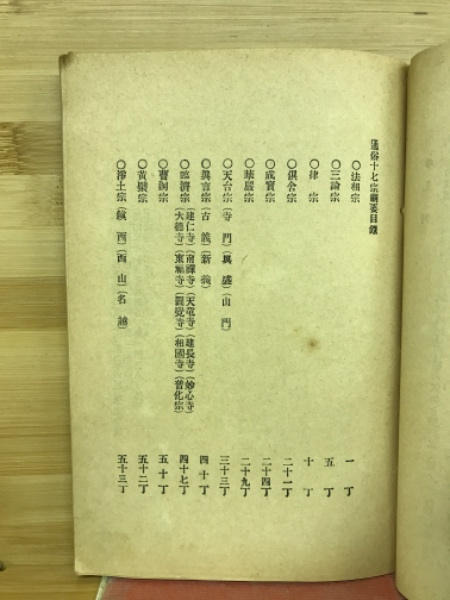 通俗十七宗綱要目錄
○法相宗 一丁
○三論宗 五丁
○律宗 十丁
○俱舍宗 二十一丁
○成實宗 二十四丁
○華嚴宗 二十九丁
○天台宗(寺門)(眞盛)(山門) 三十三丁
○眞言宗(古義)(新義) 四十丁
○臨濟宗(建仁寺)(南禪寺)(天竜寺)(建長寺)(妙心寺)(大德寺)(東福寺)(圓覺寺)(相國寺)(普化宗) 四十七丁
○曹洞宗 五十丁
○黃檗宗 五十二丁
○淨土宗(鎭西)(西山)(名越) 五十三丁